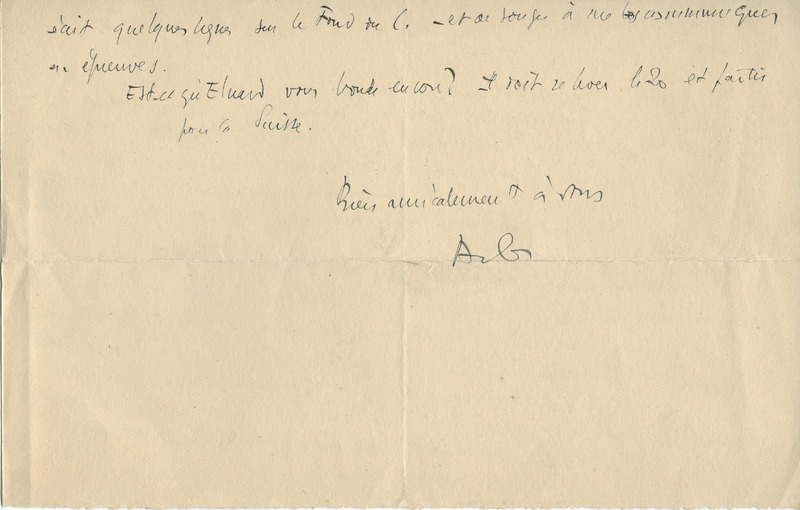 quelques lignes sur le Fond de C. – et de songer à me les communiquer
en épreuves.
Est-ce qu'Eluard vous boude encore? Il doit se lever le 20 et partir
pour la Suisse.
Bien amicalement à vous